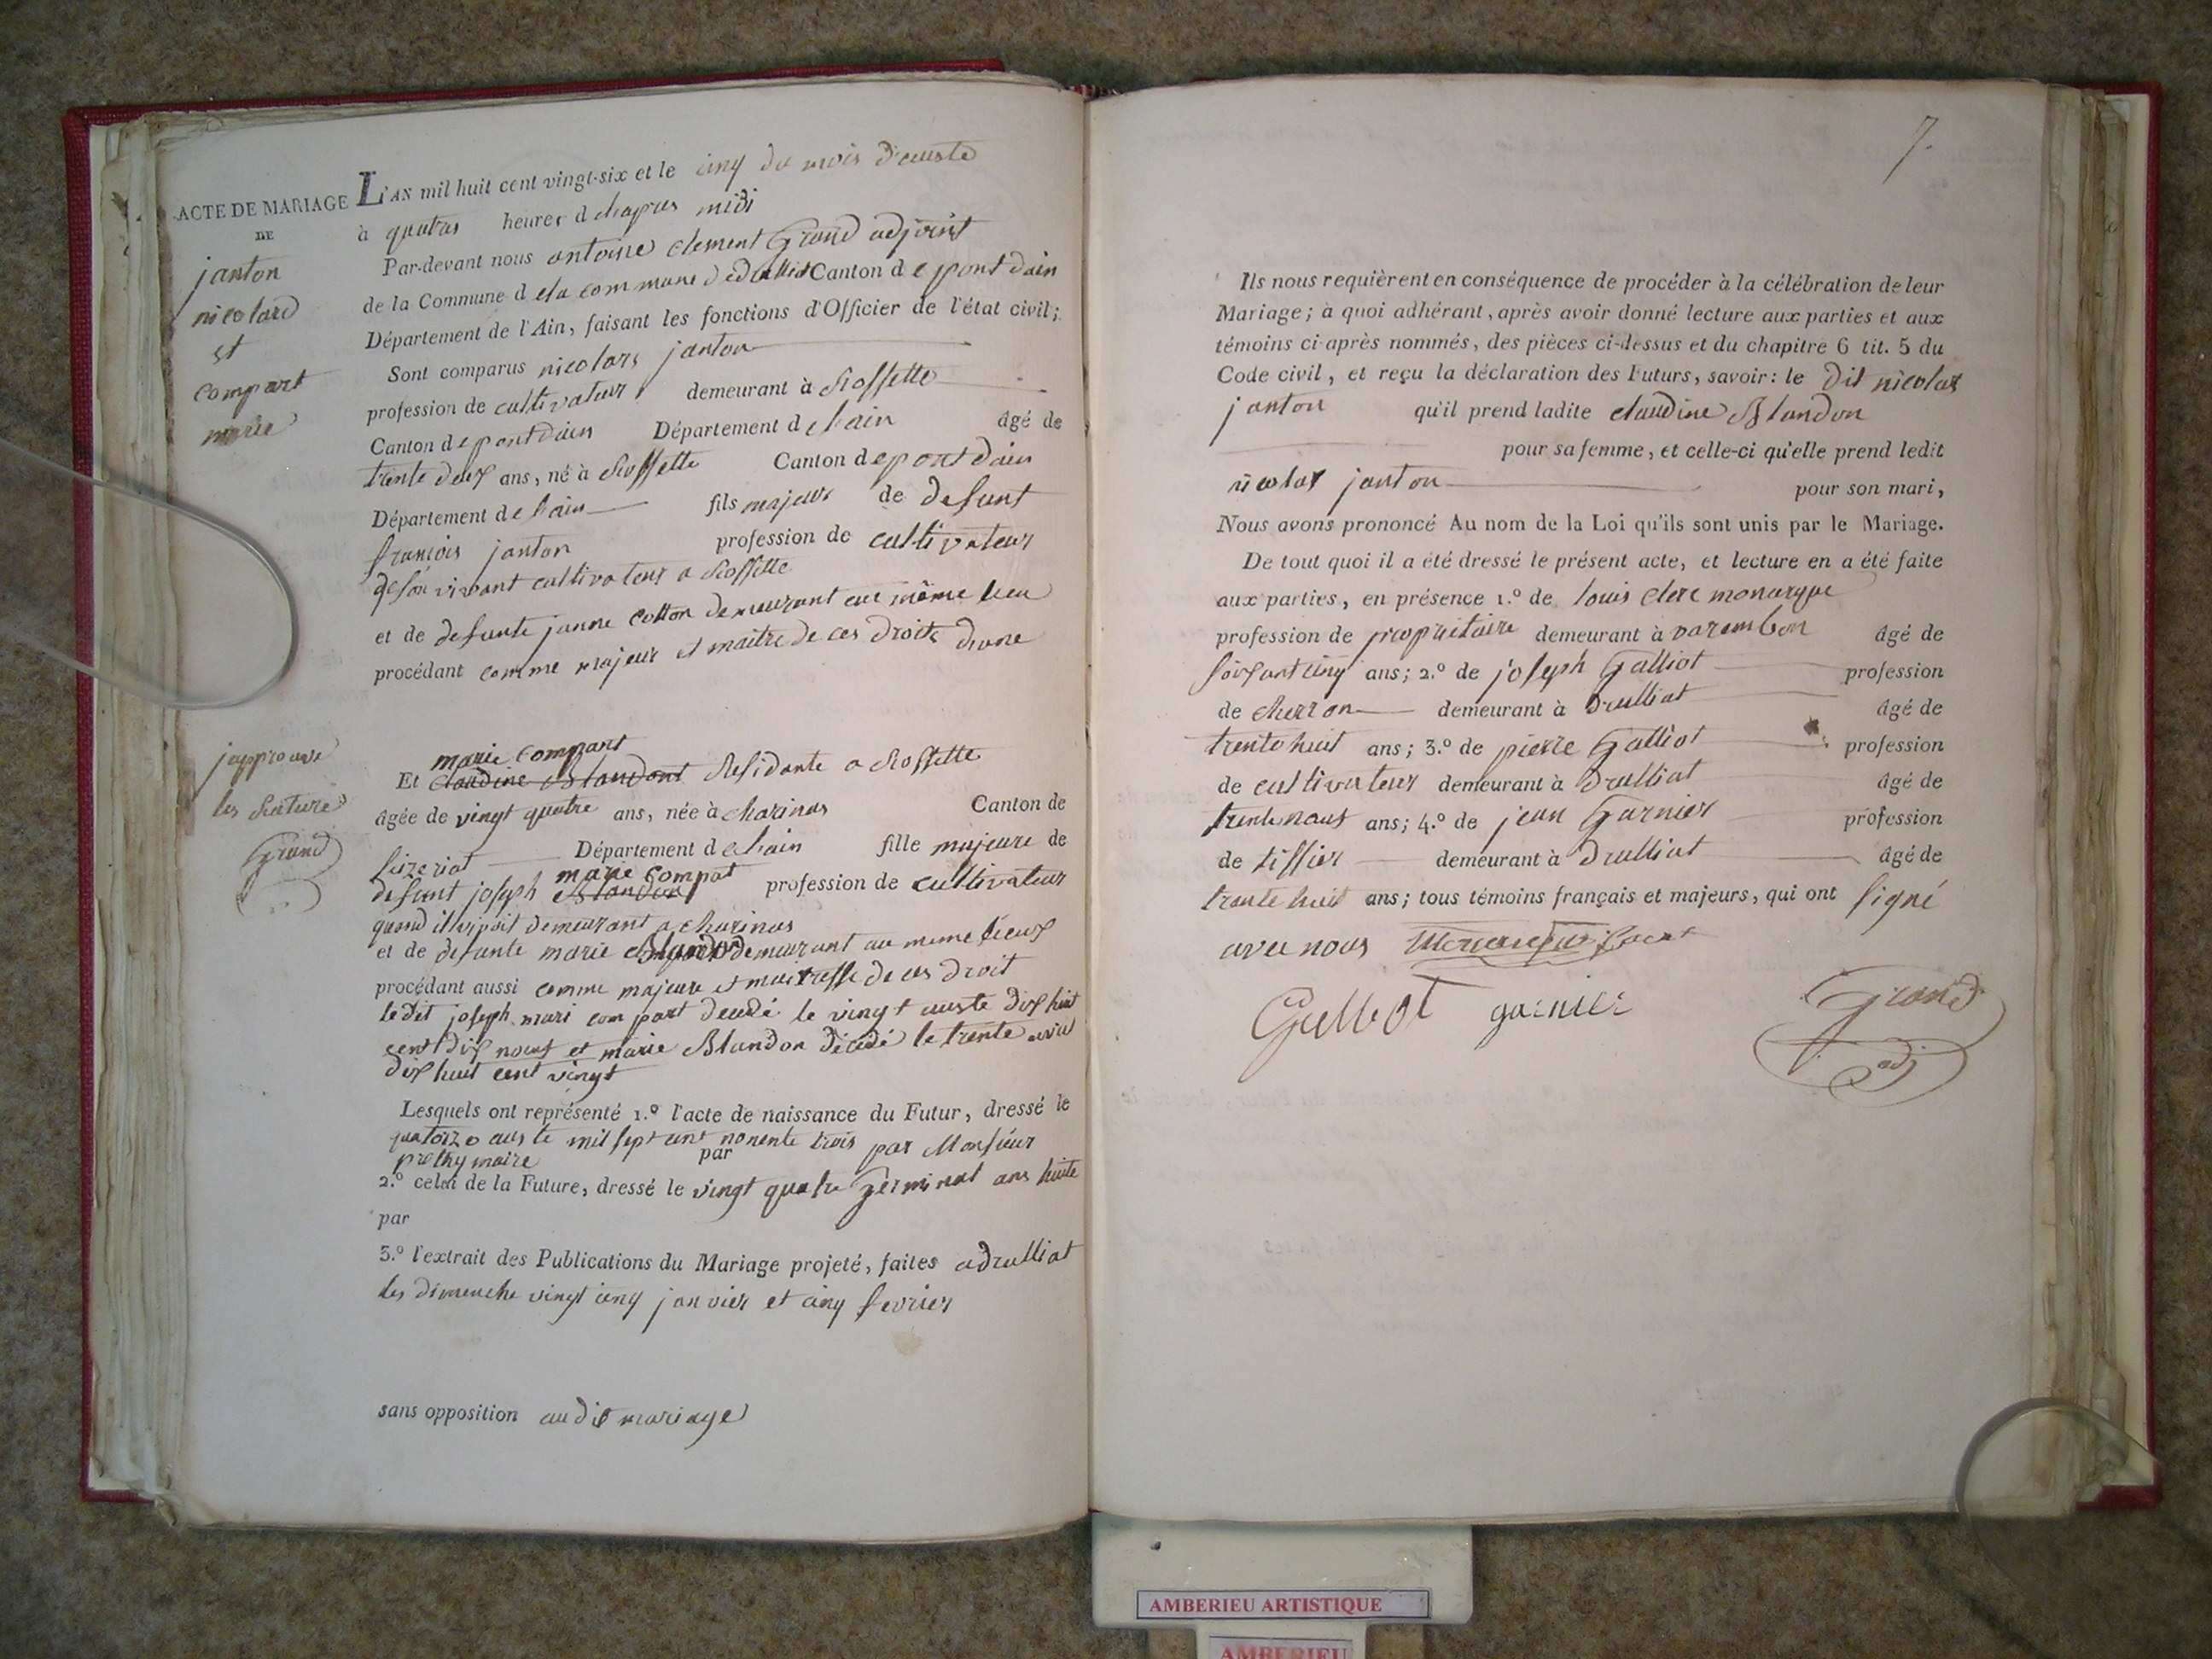 ACTE DE MARIAGE
DE
janton
nicolard
et
compart
marie
L'AN mil huit cent vingt-six et le cinq du mois d'auste
à quatras heures d elapres midi
Par-devant nous antoine clement Grand adjoint
de la Commune d ela commune de Canton d e pont dain
Département de l'Ain, faisant les fonctions d'Officier de l'état civil;
Sont comparus nicolars janton
profession de cultivateur demeurant à Rossette
Canton d e pont dain Département d e lain âgé de
trente deux ans, né à Rossette Canton d e pont dain
Département d e lain fils majeur de defunt
françois janton profession de cultivateur
de son vivant cultivateur a Rossette
et de defunte janne cotton demeurant au même lieu
procédant comme majeur et maitre de ces droits
japprouve
les Rature
Grand
marie compart
Et claudine Blandont Residante a Rossette
âgée de vingt quatre ans, née à charinas Canton de
lizeriat Département d e lain fille majeure de
marie compat
defunt joseph Blandon profession de cultivateur
quand il vivoit demeurant a charinas
et de defunte marie Blandon demeurant au meme lieux
procédant aussi comme majeure et maitresse de ces droit
le dit joseph mari compart decedé le vingt auste dix huit
cent dix nouf et marie Blandon décedé le trente
dix huit cent vingt
Lesquels ont représenté 1.º l'acte de naissance du Futur, dressé le
quatorze auste mil sept cent nonente trois par Monsieur
maire par
2.º celui de la Future, dressé le vingt quatre germinal ans huite
par
3.º l'extrait des Publications du Mariage projeté, faites a drulliat
les dimenche vingt cinq janvier et cinq fevrier
sans opposition au dit mariage
7.
Ils nous requièrent en conséquence de procéder à la célébration de leur
Mariage; à quoi adhérant, après avoir donné lecture aux parties et aux
témoins ci-après nommés, des pièces ci-dessus et du chapitre 6 tit. 5 du
Code civil, et reçu la déclaration des Futurs, savoir: le dit nicolas
janton qu'il prend ladite claudine Blandon
pour sa femme, et celle-ci qu'elle prend ledit
nicolas janton pour son mari,
Nous avons prononcé Au nom de la Loi qu'ils sont unis par le Mariage.
De tout quoi il a été dressé le présent acte, et lecture en a été faite
aux parties, en présence 1.º de louis clerc monarque
profession de propriétaire demeurant à varembon âgé de
soixant cinq ans; 2.º de joseph Galliot profession
de cherron demeurant à Drulliat âgé de
trente huit ans; 3.º de pierre Galliot profession
de cultivateur demeurant à Drulliat âgé de
trente nouf ans; 4.º de jean Garnier profession
de tissier demeurant à Drulliat âgé de
trante huit ans; tous témoins français et majeurs, qui ont signé
avec nous
garnier
Grand
adj
AMBERIEU ARTISTIQUE
AMBERIEU